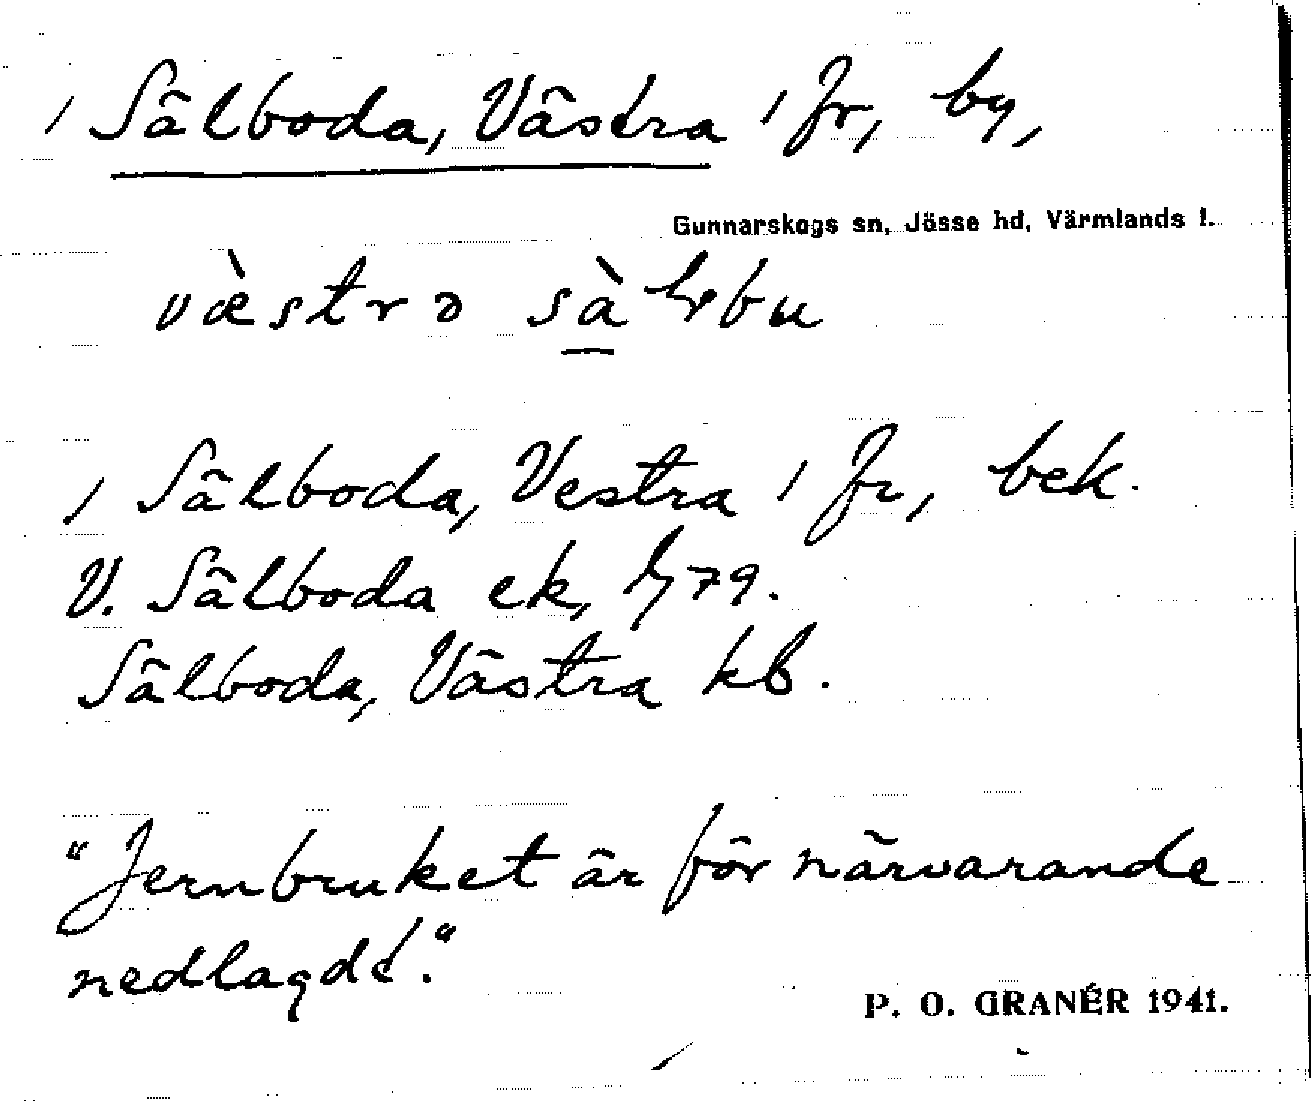 / Sälboda, Västra / fr, by,
Gunnarskogs sn, Jösse hd, Värmlands l.
væ̀strə
/ Sälboda, Vestra / fr, bek.
V. Sälboda ek, 79.
Sälboda, Västra kb.
"Jernbruket är för närvarande
nedlagdt."
P. O. GRANÉR 1941.